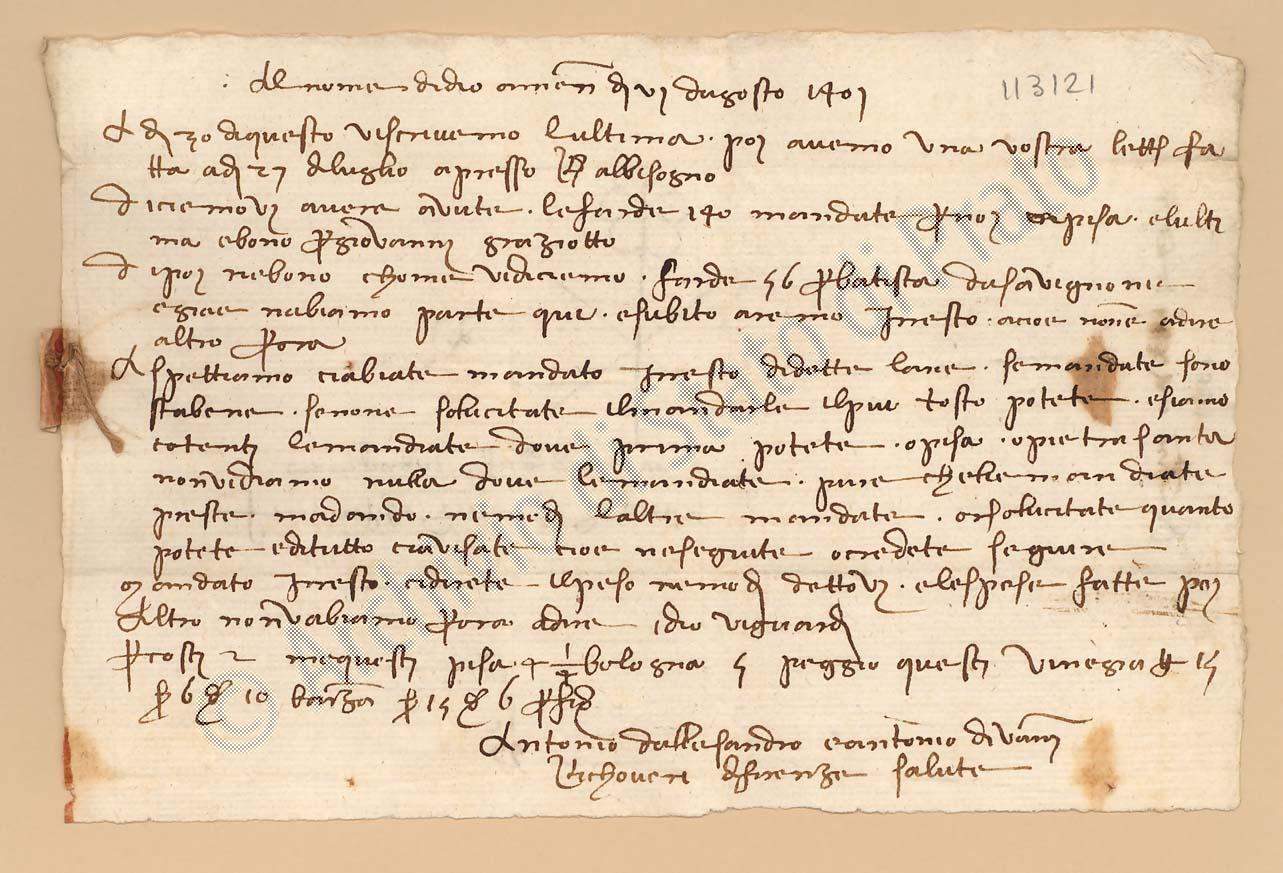 Al nome di dio amen di vi dagosto 1401
113121
A di 30 di questo vi scrivemo lultima poi avemo una vostra lett fa
tta a di 27 di luglio apresso R albisogno
diciemovi avere avute le farde 140 mandate p noi pisa e lulti
ma ebono p giovanni graziotto
di poi nebono chome vi diciemo farde 56 p batista da savignone
e gia e nabiamo parte qui e subito aremo i resto acioe none a dire
altro p ora
Aspettiamo ci abiate mandato i resto di dette lane se mandate sono
sta bene se none solicitate il mandarle il piu tosto potete e siamo
cotenti le mandiate dove prima potete o pisa o pietra santa
non vi diamo nulla dove le mandiate pure che le mandiate
preste ne modi laltre mandate or solicitate quanto
potete e di tutto ci avisate cioe ne seguite o credete seguire
mandato i resto ci direte il peso ne modi dettovi e le spese fatte poi
Altro non vabiamo p ora a dire idio vi guardi
p costi 2 me questi pisa 4 1/2 bologna 5 peggio questi vinegia 15
p 6 d 10 p 15 d 6 p fio
Antonio dallesandro e antonio di vani
Richoveri di firenze salute
© Archivio di Stato di Prato